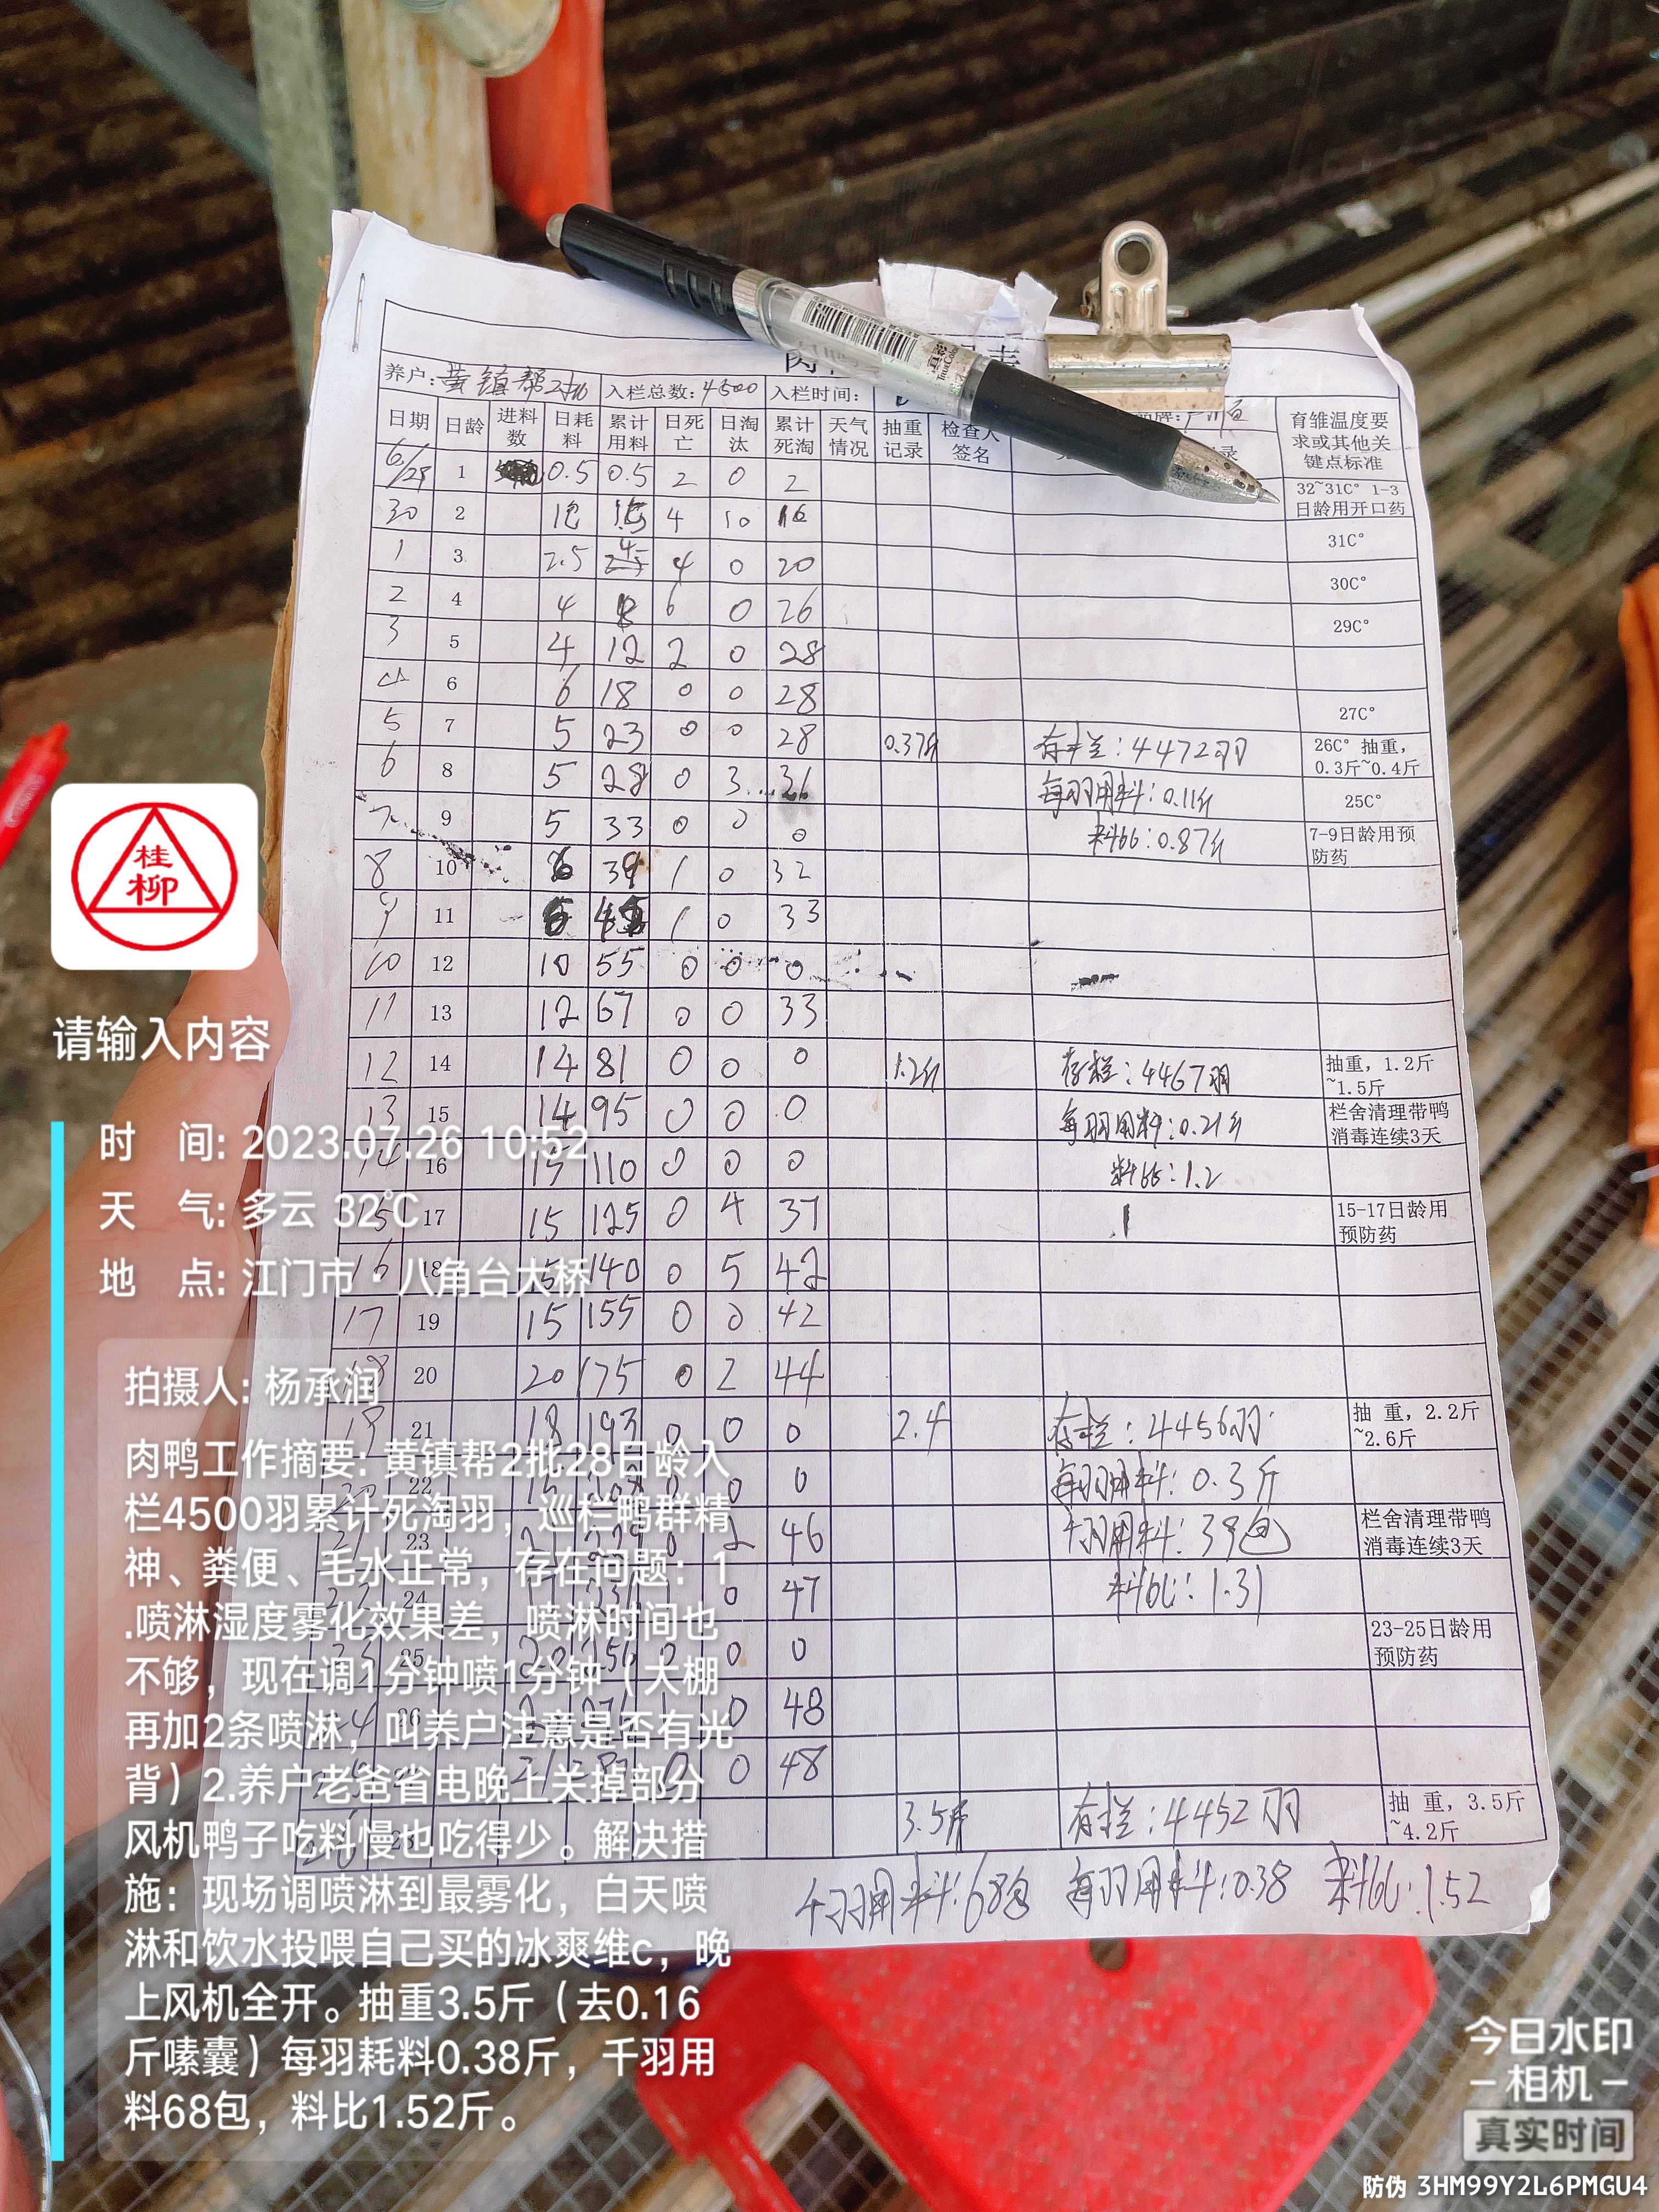 养户: 黄镇帮2批 入栏总数: 4500 入栏时间:
日期 日龄 进料数 日耗料 累计用料 日死亡 日淘汰 累计死淘 天气情况 抽重记录 检查人签名 育雏温度要求或其他关键点标准
6/29 1 0.5 0.5 2 0 2 32~31C° 1-3日龄用开口药
30 2 4 10 16 31C°
1 3 2.5 4 0 20 30C°
2 4 4 8 6 0 26 29C°
3 5 4 12 2 0 28
4 6 6 18 0 0 28 27C°
5 7 5 23 0 0 28 0.37斤 存栏:4472羽 26C° 抽重,0.3斤~0.4斤
6 8 5 28 0 3 31 每羽用料:0.11斤 25C°
7 9 5 33 0 0 0 料比:0.87斤 7-9日龄用预防药
8 10 6 39 1 0 32
9 11 6 45 1 0 33
10 12 10 55 0 0 0
11 13 12 67 0 0 33
12 14 14 81 0 0 0 1.2斤 存栏:4467羽 抽重,1.2斤~1.5斤
13 15 14 95 0 0 0 每羽用料:0.21斤 栏舍清理带鸭消毒连续3天
14 16 15 110 0 0 0 料比:1.2
15 17 15 125 0 4 37 15-17日龄用预防药
16 18 15 140 0 5 42
17 19 15 155 0 0 42
18 20 20 175 0 2 44
19 21 18 193 0 0 0 2.4 存栏:4456羽 抽 重,2.2斤~2.6斤
22 0 0 每羽用料:0.3斤
23 2 46 千羽用料:39包 栏舍清理带鸭消毒连续3天
24 0 47 料比:1.31
25 0 0 23-25日龄用预防药
26 0 48
0 48
3.5斤 存栏:4452羽 抽 重,3.5斤~4.2斤
千羽用料:68包 每羽用料:0.38 料比:1.52
桂
柳
请输入内容
时 间: 2023.07.26 10:52
天 气: 多云 32℃
地 点: 江门市·八角台大桥
拍摄人: 杨承润
肉鸭工作摘要: 黄镇帮2批28日龄入
栏4500羽累计死淘羽，巡栏鸭群精
神、粪便、毛水正常，存在问题：1
.喷淋湿度雾化效果差，喷淋时间也
不够，现在调1分钟喷1分钟（大棚
再加2条喷淋，叫养户注意是否有光
背）2.养户老爸省电晚上关掉部分
风机鸭子吃料慢也吃得少。解决措
施：现场调喷淋到最雾化，白天喷
淋和饮水投喂自己买的冰爽维c，晚
上风机全开。抽重3.5斤（去0.16
斤嗉囊）每羽耗料0.38斤，千羽用
料68包，料比1.52斤。
今日水印
相机
真实时间
防伪 3HM99Y2L6PMGU4